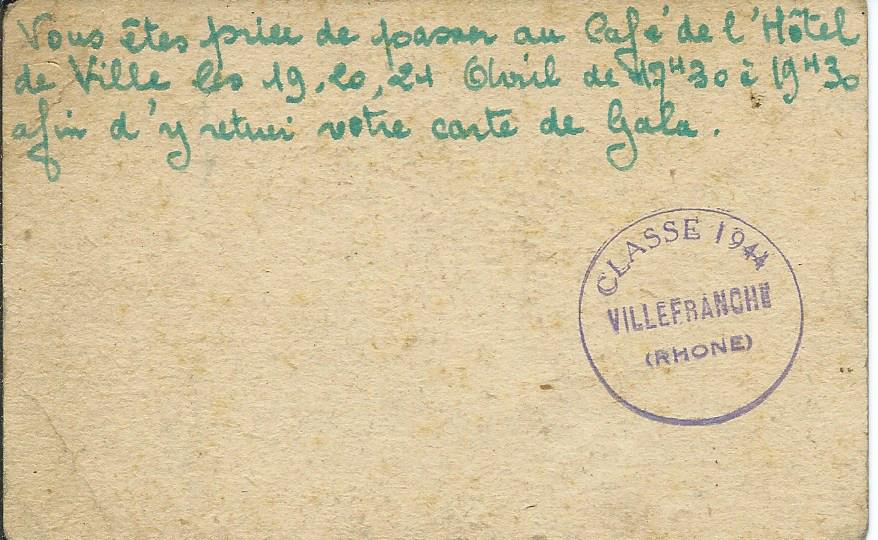 Vous êtes priée de passer au Café de l'Hôtel
de Ville les 19, 20, 21 Avril de 17H30 à 19H30
afin d'y retirer votre carte de Gala.
CLASSE 1944
VILLEFRANCHE
(RHONE)